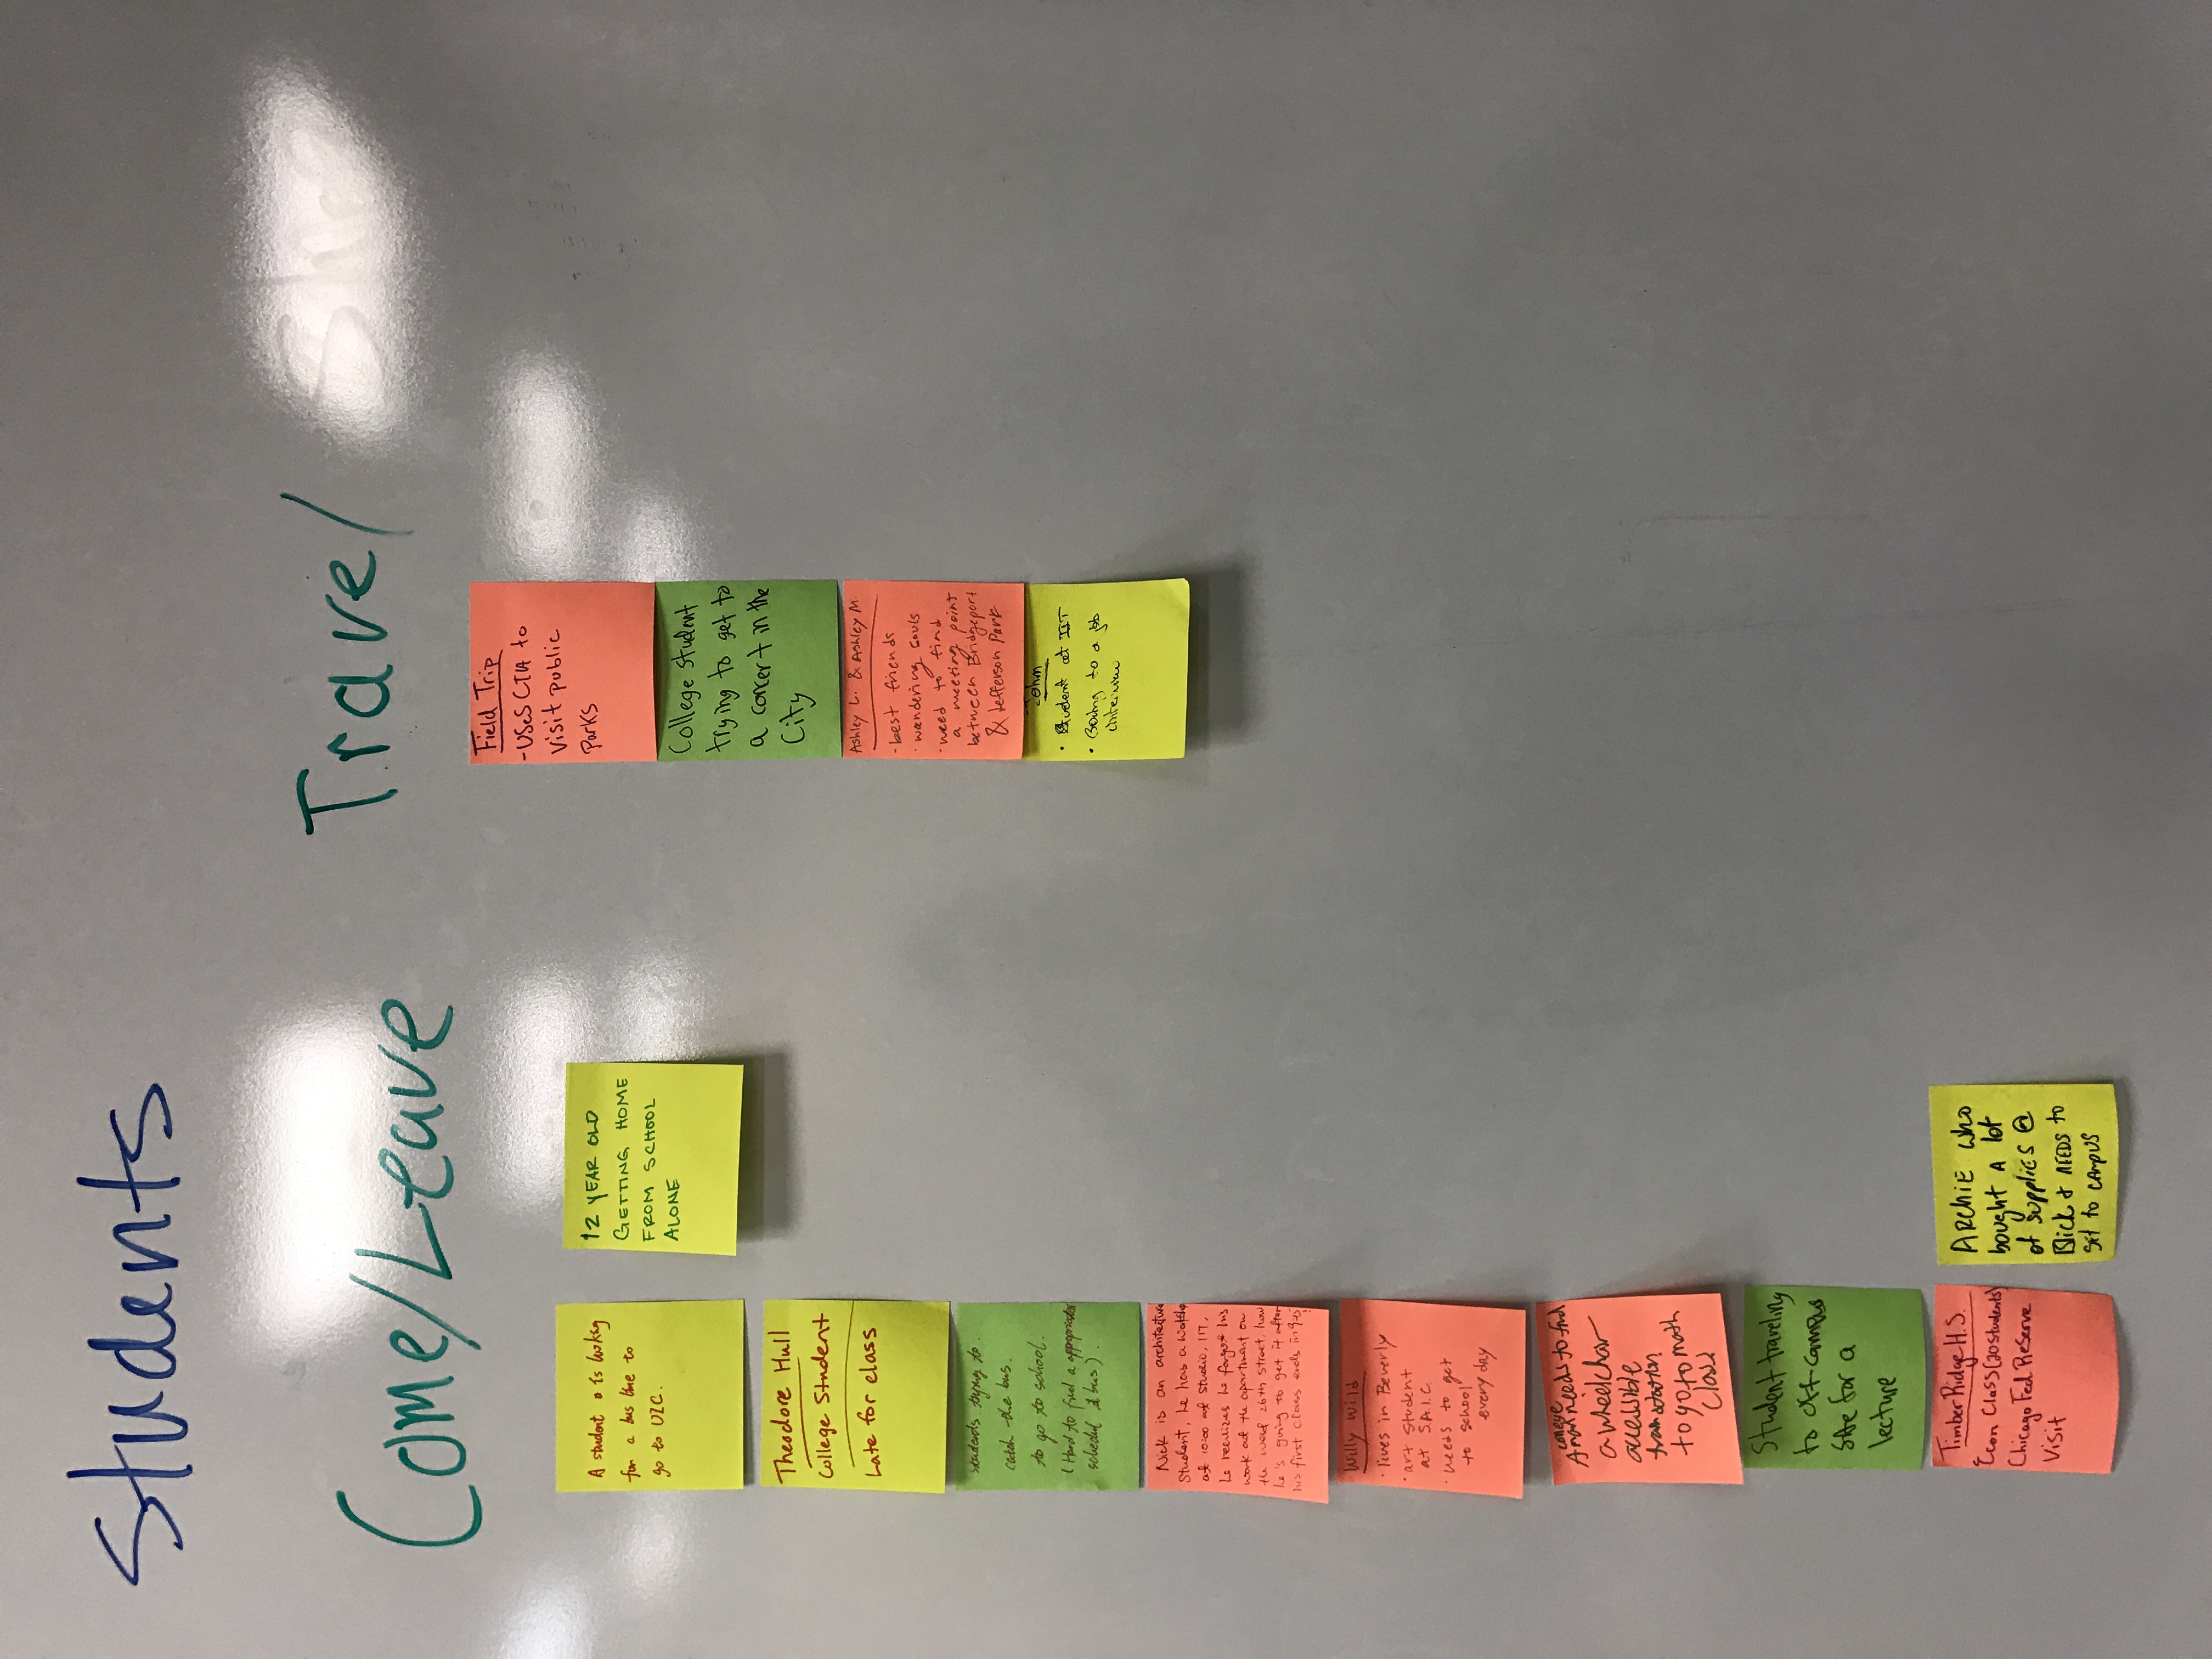 Students
Come/Leave
A student is looking
for a bus line to
go to UIC.
12 YEAR OLD
GETTING HOME
FROM SCHOOL
ALONE
Theodore Hull
College Student
Late for class
students trying to
catch the bus.
to go to school.
(Hard to find a appropriate
bus).
Nick is an architecture
student, he has a
at 10:00 at Studio, IIT,
he realizes he forgot his
work at the apartment on
the west 26th street, how
he's going to get it after
his first class ends in
Willy Wild
· lives in Beverly
· art student
at S.A.I.C.
· needs to get
to school
every day
college
A man needs to find
a wheelchar
acessible
to go to math
class
Student traveling
to off-campus
site for a
lecture
Timber Ridge H.S.
Econ Class (20 students)
Chicago Fed Reserve
Visit
ARCHIE who
bought A lot
of supplies @
Blick & NEEDS to
get to CAMPUS
Travel
Field Trip
- Uses CTA to
visit public
Parks
College student
trying to get to
a concert in the
City
Ashley L. & Ashley M.
- best friends
· wandering souls
· need to find
a meeting point
between Bridgeport
& Jefferson Park
John
· Student at IIT
· Going to a job
interview